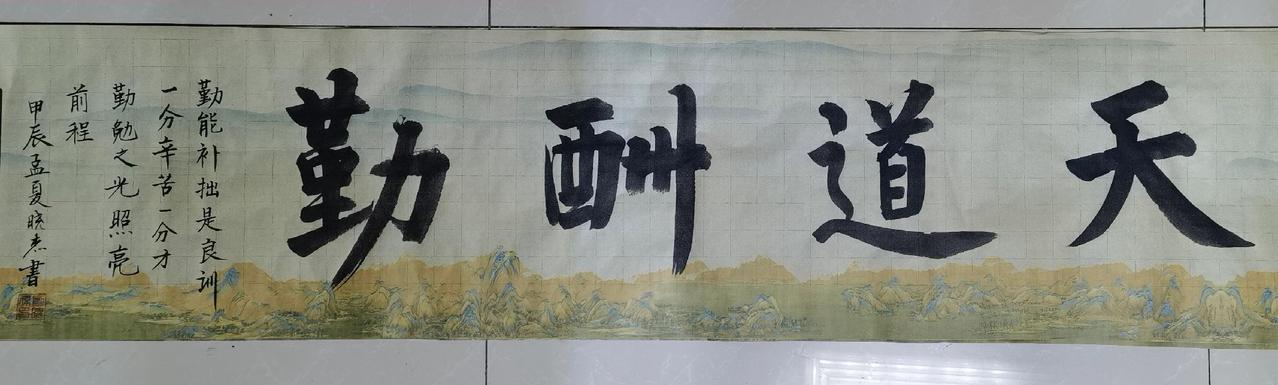 天道酬勤
勤能补拙是良训
一分辛苦一分才
勤勉之光照亮
前程
甲辰孟夏晓杰書